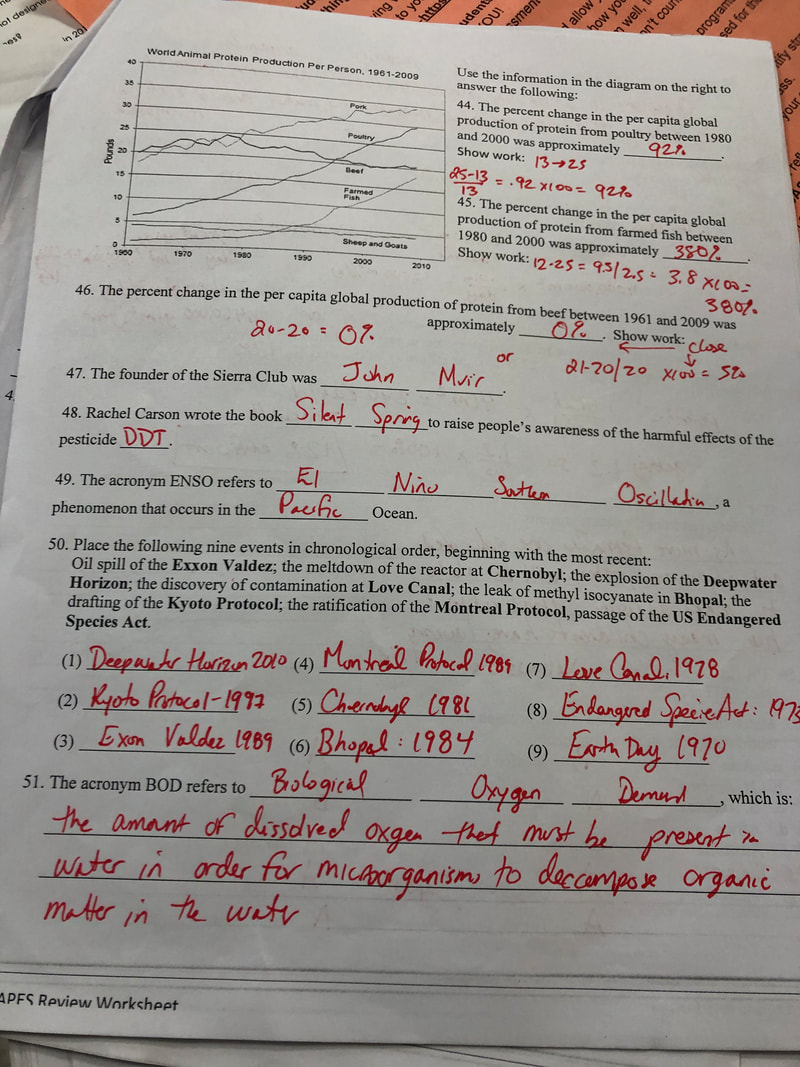 World Animal Protein Production Per Person, 1961-2009
40
35
30
25
20
15
10
5
0
Pounds
Pork
Poultry
Beef
Farmed
Fish
Sheep and Goats
1960 1970 1980 1990 2000 2010
Use the information in the diagram on the right to
answer the following:
44. The percent change in the per capita global
production of protein from poultry between 1980
and 2000 was approximately 92%.
Show work: 13→25
25-13/13 = .92 x100 = 92%
45. The percent change in the per capita global
production of protein from farmed fish between
1980 and 2000 was approximately 380%.
Show work: 12-25 = 9.5/2.5 = 3.8 x100 =
380%
46. The percent change in the per capita global production of protein from beef between 1961 and 2009 was
approximately 0%. Show work:
20-20 = 0% or close
21-20/20 x100 = 5%
47. The founder of the Sierra Club was John Muir.
48. Rachel Carson wrote the book Silent Spring to raise people's awareness of the harmful effects of the
pesticide DDT.
49. The acronym ENSO refers to El Niño Southern Oscillation, a
phenomenon that occurs in the Pacific Ocean.
50. Place the following nine events in chronological order, beginning with the most recent:
Oil spill of the Exxon Valdez; the meltdown of the reactor at Chernobyl; the explosion of the Deepwater
Horizon; the discovery of contamination at Love Canal; the leak of methyl isocyanate in Bhopal; the
drafting of the Kyoto Protocol; the ratification of the Montreal Protocol, passage of the US Endangered
Species Act.
(1) Deepwater Horizon 2010 (4) Montreal Protocol 1989 (7) Love Canal, 1978
(2) Kyoto Protocol-1997 (5) Chernobyl (8) Endangered Species Act: 1973
(3) Exon Valdez 1989 (6) Bhopal: 1984 (9) Earth Day 1970
51. The acronym BOD refers to Biological Oxygen Demand, which is:
the amount of dissolved oxgen that must be present in
water in order for microorganisms to decompose organic
matter in the water
APES Review Worksheet